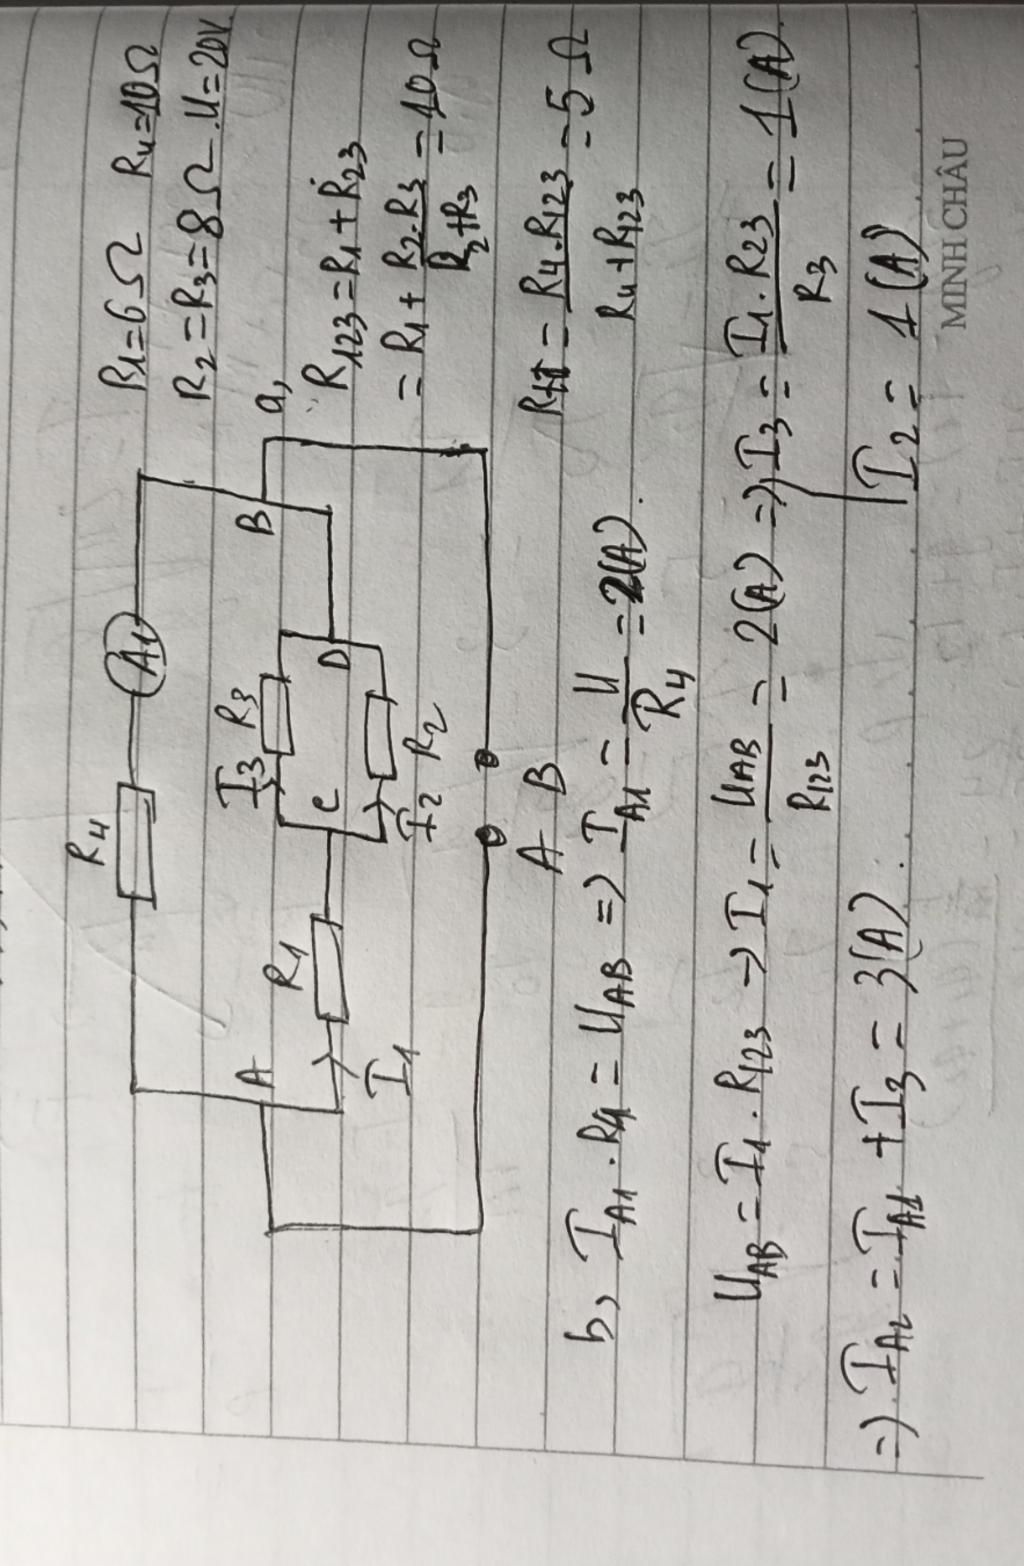 R1=6Ω R4=10Ω
R2=R3=8Ω. U=20V.
R4
A1
I3 R3
A
R1
C
D
B
I1
I2 R2
A B
a,
R123=R1+R23
=R1+ R2.R3 / R2+R3 =10Ω
Rtđ = R4.R123 / R4+R123 =5Ω
b, IA1.R4=UAB => IA1 = U / R4 =2(A).
UAB=I1.R123 → I1= UAB / R123 = 2(A) => I3= I1.R23 / R3 = 1(A).
I2= 1(A)
=> IA2=IA1+I3=3(A).
MINH CHÂU